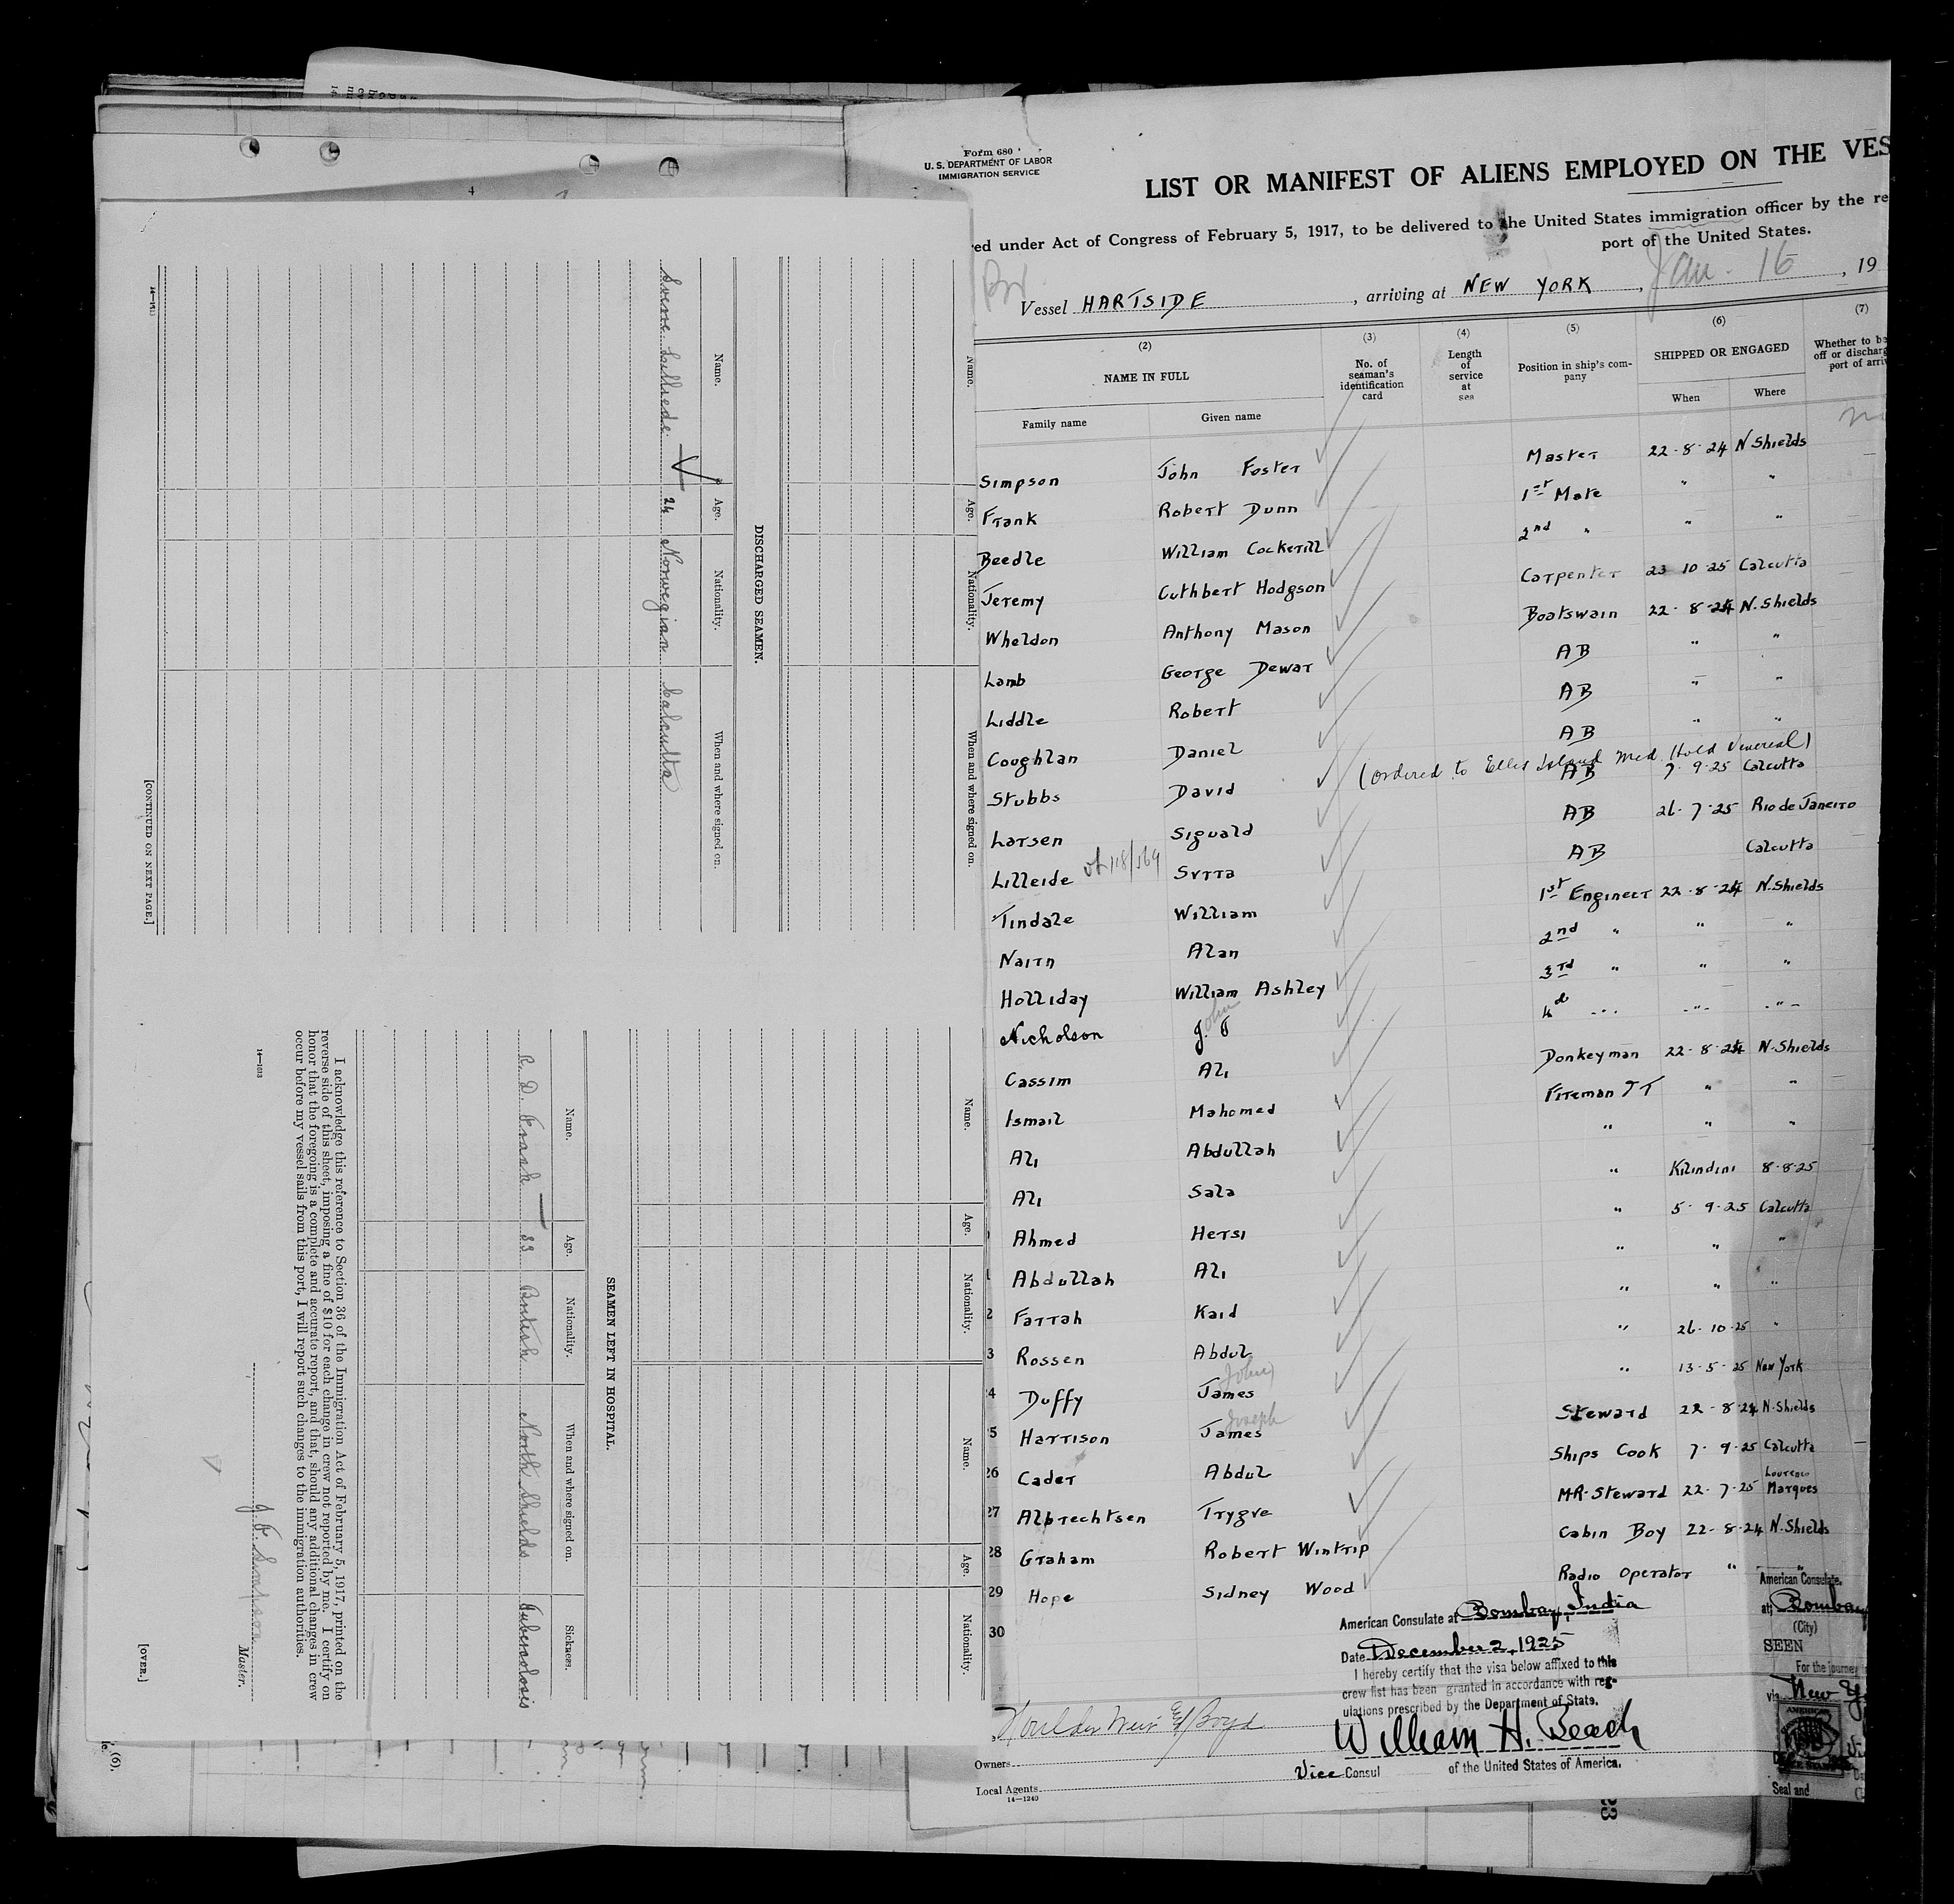 Form 680
U. S. DEPARTMENT OF LABOR
IMMIGRATION SERVICE
LIST OR MANIFEST OF ALIENS EMPLOYED ON THE VES
ed under Act of Congress of February 5, 1917, to be delivered to the United States immigration officer by the re
port of the United States.
Vessel HARTSIDE, arriving at NEW YORK, Jan. 16, 19
(2) (3) (4) (5) (6) (7)
NAME IN FULL
Family name Given name
No. of seaman's identification card
Length of service at sea
Position in ship's company
SHIPPED OR ENGAGED
When Where
Whether to b
off or discharg
port of arriv
Simpson John Foster Master 22-8-24 N Shields
Frank Robert Dunn 1st Mate " "
Beedle William Cockerill 2nd " " "
Jeremy Cuthbert Hodgson Carpenter 23 10 25 Calcutta
Wheldon Anthony Mason Boatswain 22-8-24 N. Shields
Lamb George Dewar AB " "
Liddle Robert AB " "
Coughlan Daniel AB " "
(ordered to Ellis Island Med. Hold Venereal)
Stubbs David AB 7-9-25 Calcutta
Larsen Siguald AB 26-7-25 Rio de Janeiro
Lilleide Svrra AB Calcutta
Tindale William 1st Engineer 22-8-24 N. Shields
Nairn Alan 2nd " " "
Holliday William Ashley 3rd " " "
John
Nicholson J. T
Cassim Ali Donkeyman 22-8-24 N. Shields
Ismail Mahomed Fireman TT " "
Ali Abdullah " " "
Ali Sala " Kilindini 8-8-25
Ahmed Hersi " 5-9-25 Calcutta
Abdullah Ali " " "
2 Farrah Kaid " " "
3 Rossen Abdul " 26-10-25 "
John
4 Duffy James " 13-5-25 New York
Joseph
5 Harrison James Steward 22-8-24 N. Shields
26 Cader Abdul Ships Cook 7-9-25 Calcutta
27 Albrechtsen Trygve MR-Steward 22-7-25 Lourenco Marques
28 Graham Robert Wintrip Cabin Boy 22-8-24 N. Shields
29 Hope Sidney Wood Radio Operator " "
30
American Consulate at Bombay, India
Date December 2, 1925
I hereby certify that the visa below affixed to this
crew list has been granted in accordance with reg-
ulations prescribed by the Department of State.
William H. Beach
Vice Consul of the United States of America.
American Consulate
at Bombay
(City)
SEEN
For the journey
via New Y
Seal and
Houlder Weir & Boyd
Owners
Local Agents
14—1240
Name. Age. Nationality. When and where signed on.
Name. Age. Nationality.
Name. Age. Nationality.
DISCHARGED SEAMEN.
Name. Age. Nationality. When and where signed on.
Sverre Lilliede 24 Norwegian Calcutta
[CONTINUED ON NEXT PAGE.]
SEAMEN LEFT IN HOSPITAL.
Name. Age. Nationality. When and where signed on. Sickness.
33 British North Shields Tuberculosis
I acknowledge this reference to Section 36 of the Immigration Act of February 5, 1917, printed on the
reverse side of this sheet, imposing a fine of $10 for each change in crew not reported by me. I certify on
honor that the foregoing is a complete and accurate report, and that, should any additional changes in crew
occur before my vessel sails from this port, I will report such changes to the immigration authorities.
J. F. Simpson
Master.
14—1613
[OVER.]